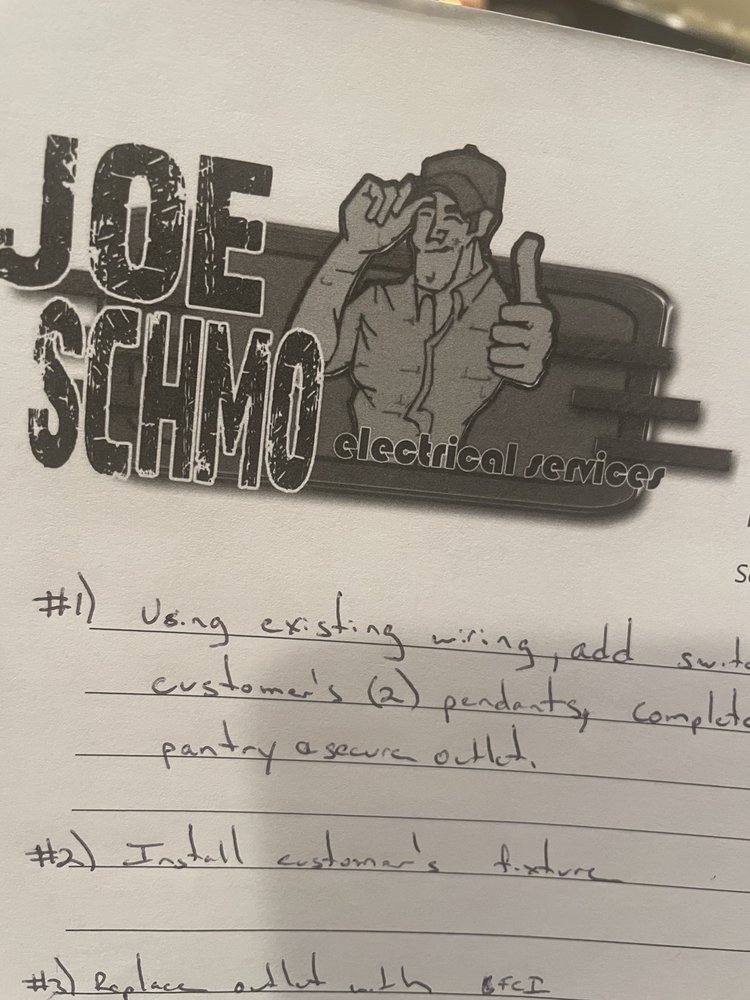 JOE
SCHMO
electrical services
#1) Using existing wiring, add switc
customer's (2) pendants, complete
pantry & secure outlet.
#2) Install customer's fixture
#3) Replace outlet with GFCI